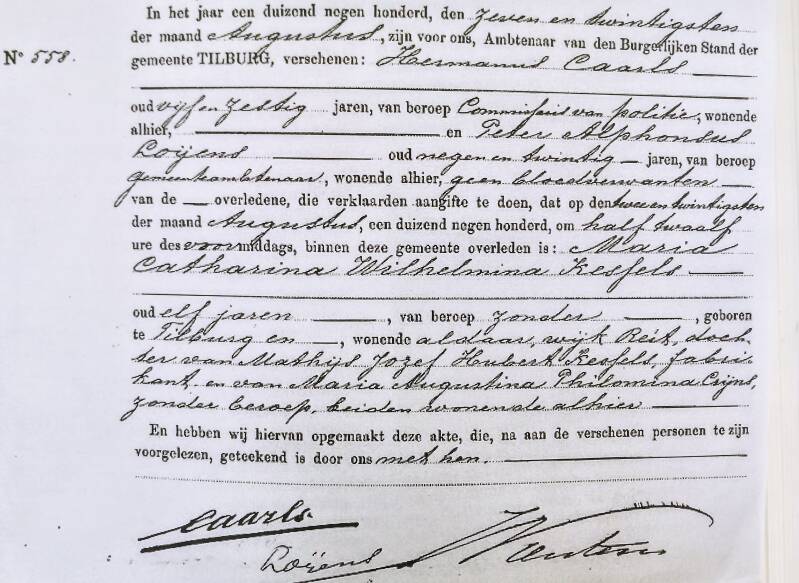 In het jaar een duizend negen honderd, den zeven en twintigsten
der maand Augustus, zijn voor ons, Ambtenaar van den Burgerlijken Stand der
No 558. gemeente TILBURG, verschenen: Hermanus Caarls
oud vijf en zestig jaren, van beroep Commissaris van politie, wonende
alhier, en Peter Alphonsus
Loijens oud negen en twintig jaren, van beroep
gemeenteambtenaar, wonende alhier, geen bloedverwanten
van de overledene, die verklaarden aangifte te doen, dat op den twee en twintigsten
der maand Augustus, een duizend negen honderd, om half twaalf
ure des voormiddags, binnen deze gemeente overleden is: Maria
Catharina Wilhelmina Kessels
oud elf jaren, van beroep zonder, geboren
te Tilburg en, wonende aldaar, wijk Reit, doch-
ter van Mathijs Jozef Hubert Kessels, fabri-
kant, en van Maria Augustina Philomina Crijns,
zonder beroep, beiden wonende alhier
En hebben wij hiervan opgemaakt deze akte, die, na aan de verschenen personen te zijn
voorgelezen, geteekend is door ons met hen.
Caarls.
Loijens